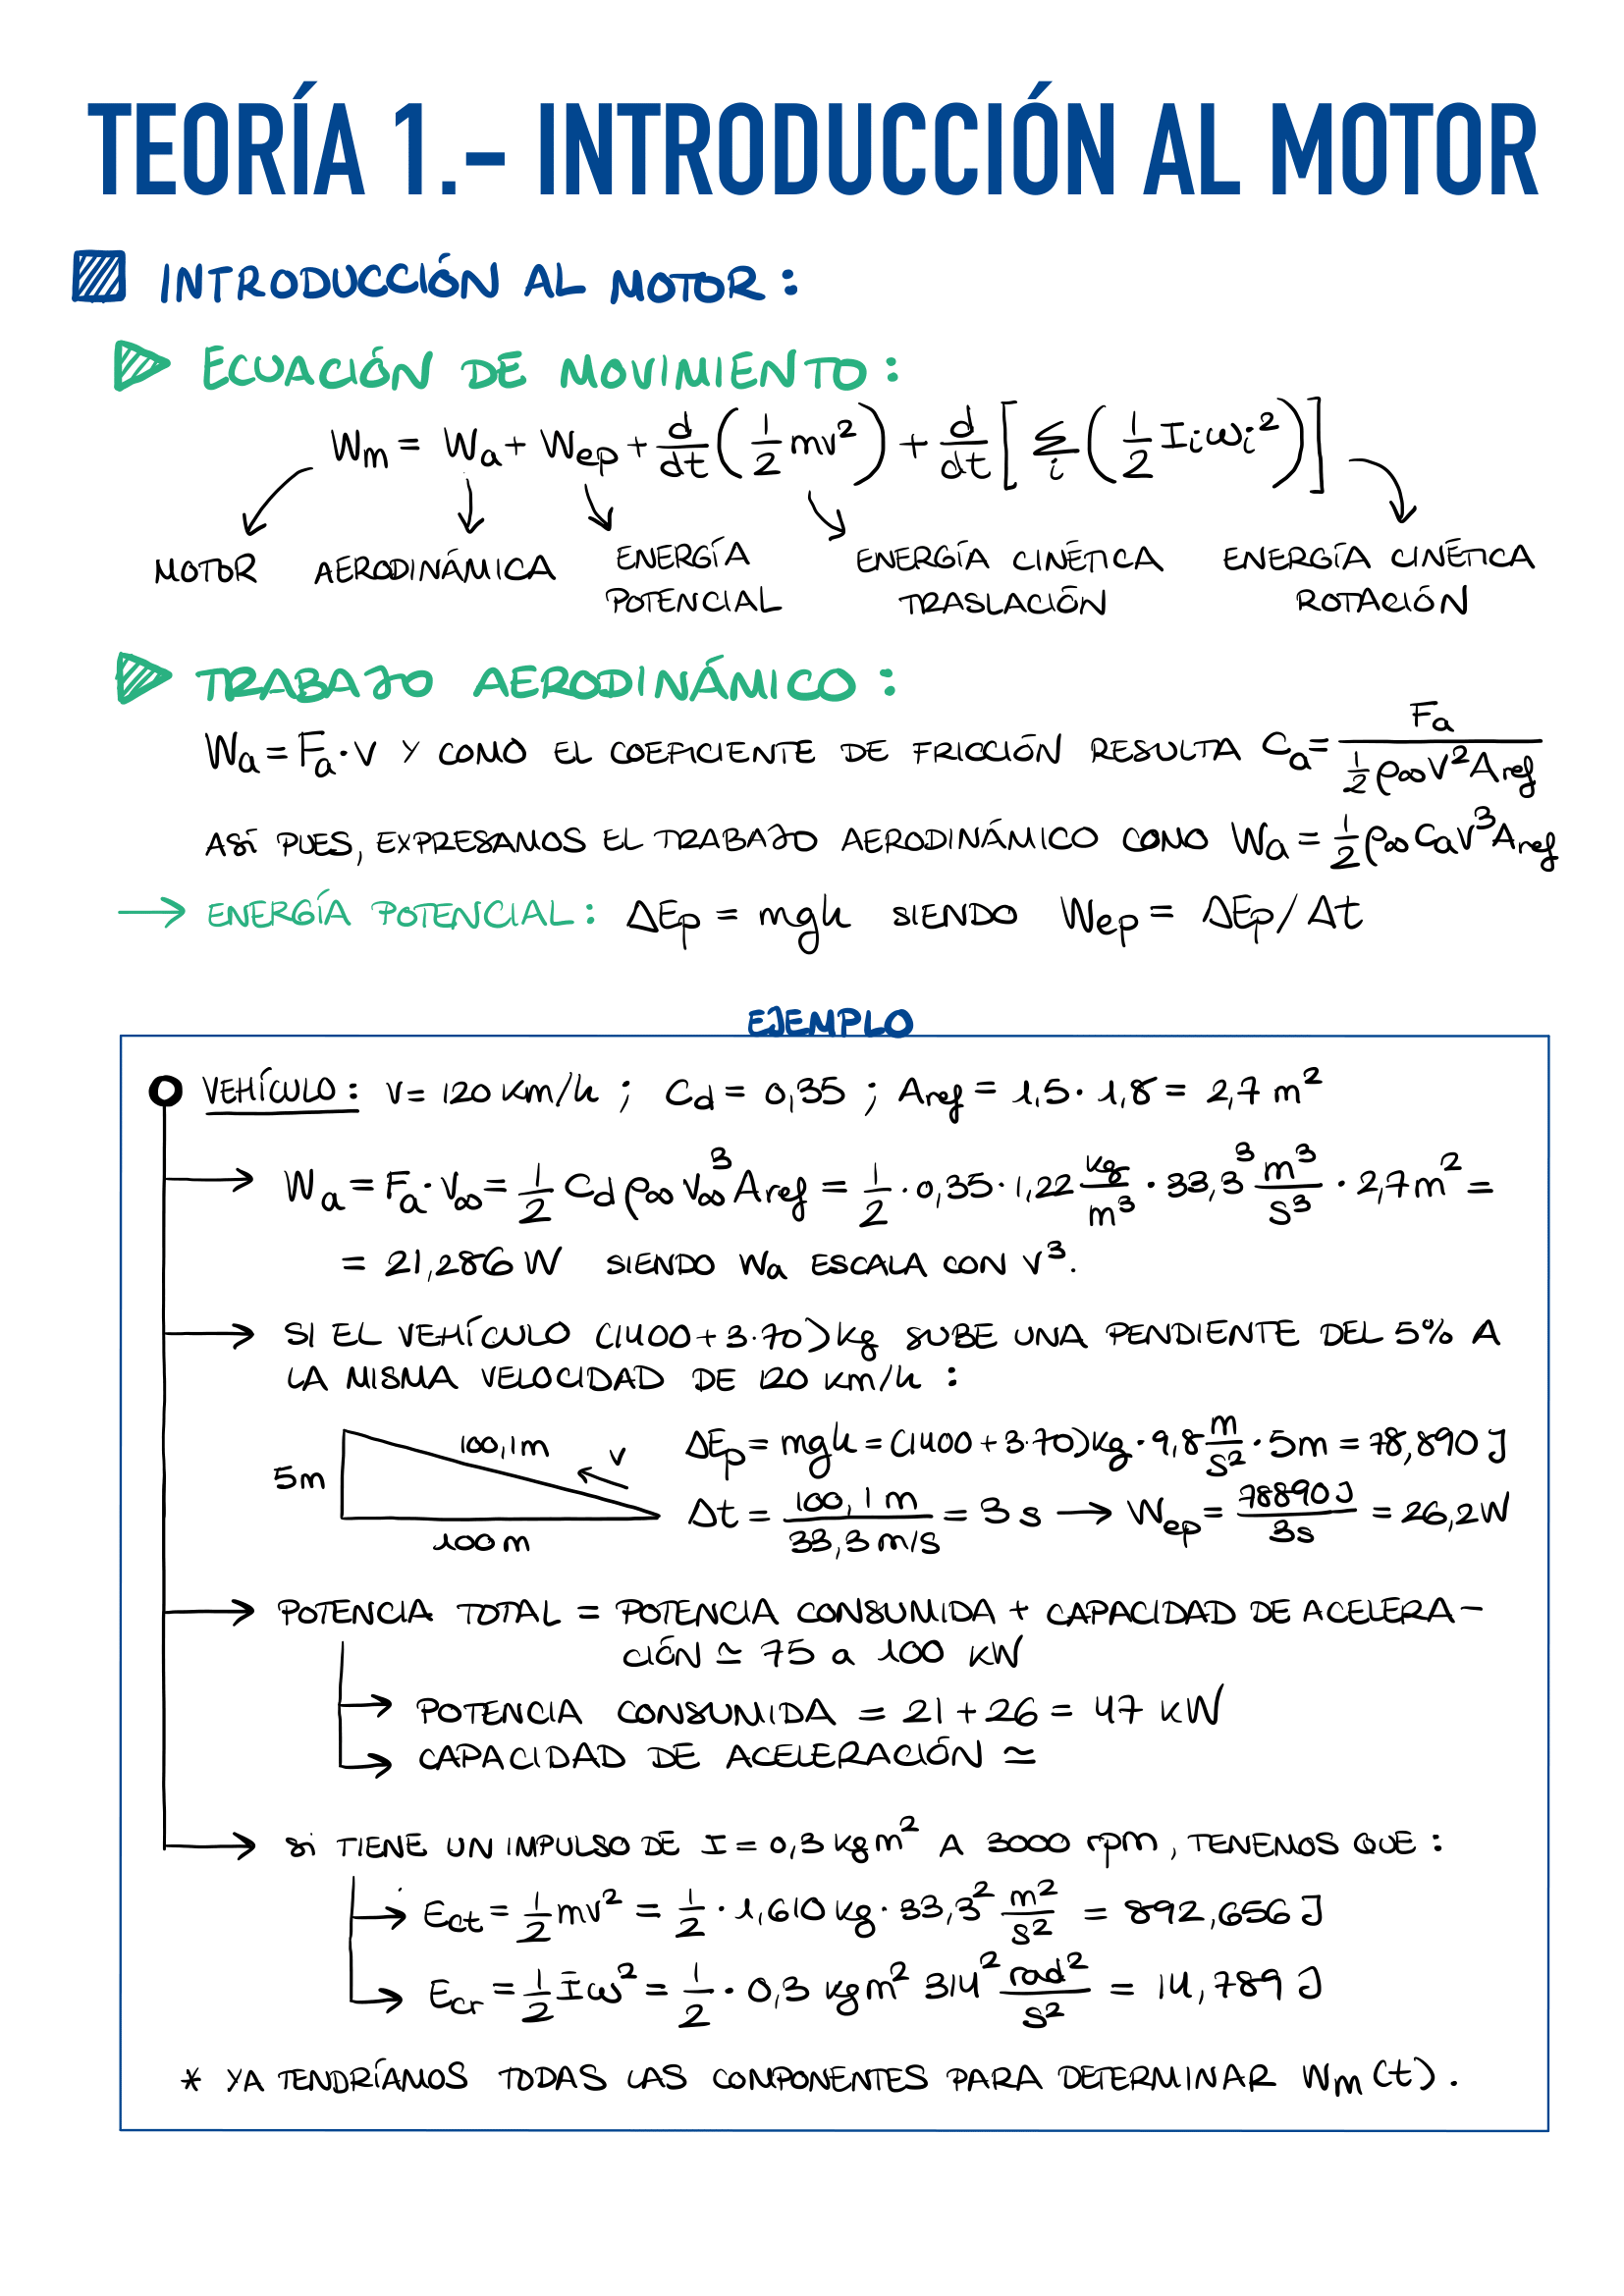 TEORÍA 1.- INTRODUCCIÓN AL MOTOR
INTRODUCCIÓN AL MOTOR :
ECUACIÓN DE MOVIMIENTO :
Wm = Wa + Wep + d/dt (1/2 mv²) + d/dt [Σi (1/2 Iiωi²)]
MOTOR AERODINÁMICA ENERGÍA POTENCIAL ENERGÍA CINÉTICA TRASLACIÓN ENERGÍA CINÉTICA ROTACIÓN
TRABAJO AERODINÁMICO :
Wa = Fa · v Y COMO EL COEFICIENTE DE FRICCIÓN RESULTA Ca = Fa / (1/2 ρ∞ V² Aref)
ASÍ PUES, EXPRESAMOS EL TRABAJO AERODINÁMICO COMO Wa = 1/2 ρ∞ Ca V³ Aref
→ ENERGÍA POTENCIAL : ΔEp = mgh SIENDO Wep = ΔEp / Δt
EJEMPLO
VEHÍCULO : v = 120 km/h ; Cd = 0,35 ; Aref = 1,5 · 1,8 = 2,7 m²
→ Wa = Fa · V∞ = 1/2 Cd ρ∞ V∞³ Aref = 1/2 · 0,35 · 1,22 kg/m³ · 33,3³ m³/s³ · 2,7 m² =
= 21,286 W SIENDO Wa ESCALA CON V³.
→ SI EL VEHÍCULO (1400 + 3·70) kg SUBE UNA PENDIENTE DEL 5% A
LA MISMA VELOCIDAD DE 120 km/h :
5m 100,1m v 100 m
ΔEp = mgh = (1400 + 3·70) kg · 9,8 m/s² · 5m = 78,890 J
Δt = 100,1 m / 33,3 m/s = 3 s → Wep = 78890 J / 3s = 26,2 W
→ POTENCIA TOTAL = POTENCIA CONSUMIDA + CAPACIDAD DE ACELERA-
CIÓN ≃ 75 a 100 kW
→ POTENCIA CONSUMIDA = 21 + 26 = 47 kW
→ CAPACIDAD DE ACELERACIÓN ≃
→ SI TIENE UN IMPULSO DE I = 0,3 kg m² A 3000 rpm, TENEMOS QUE :
→ Ect = 1/2 mv² = 1/2 · 1,610 kg · 33,3² m²/s² = 892,656 J
→ Ecr = 1/2 Iω² = 1/2 · 0,3 kg m² 314² rad²/s² = 14,789 J
* YA TENDRÍAMOS TODAS LAS COMPONENTES PARA DETERMINAR Wm (t).